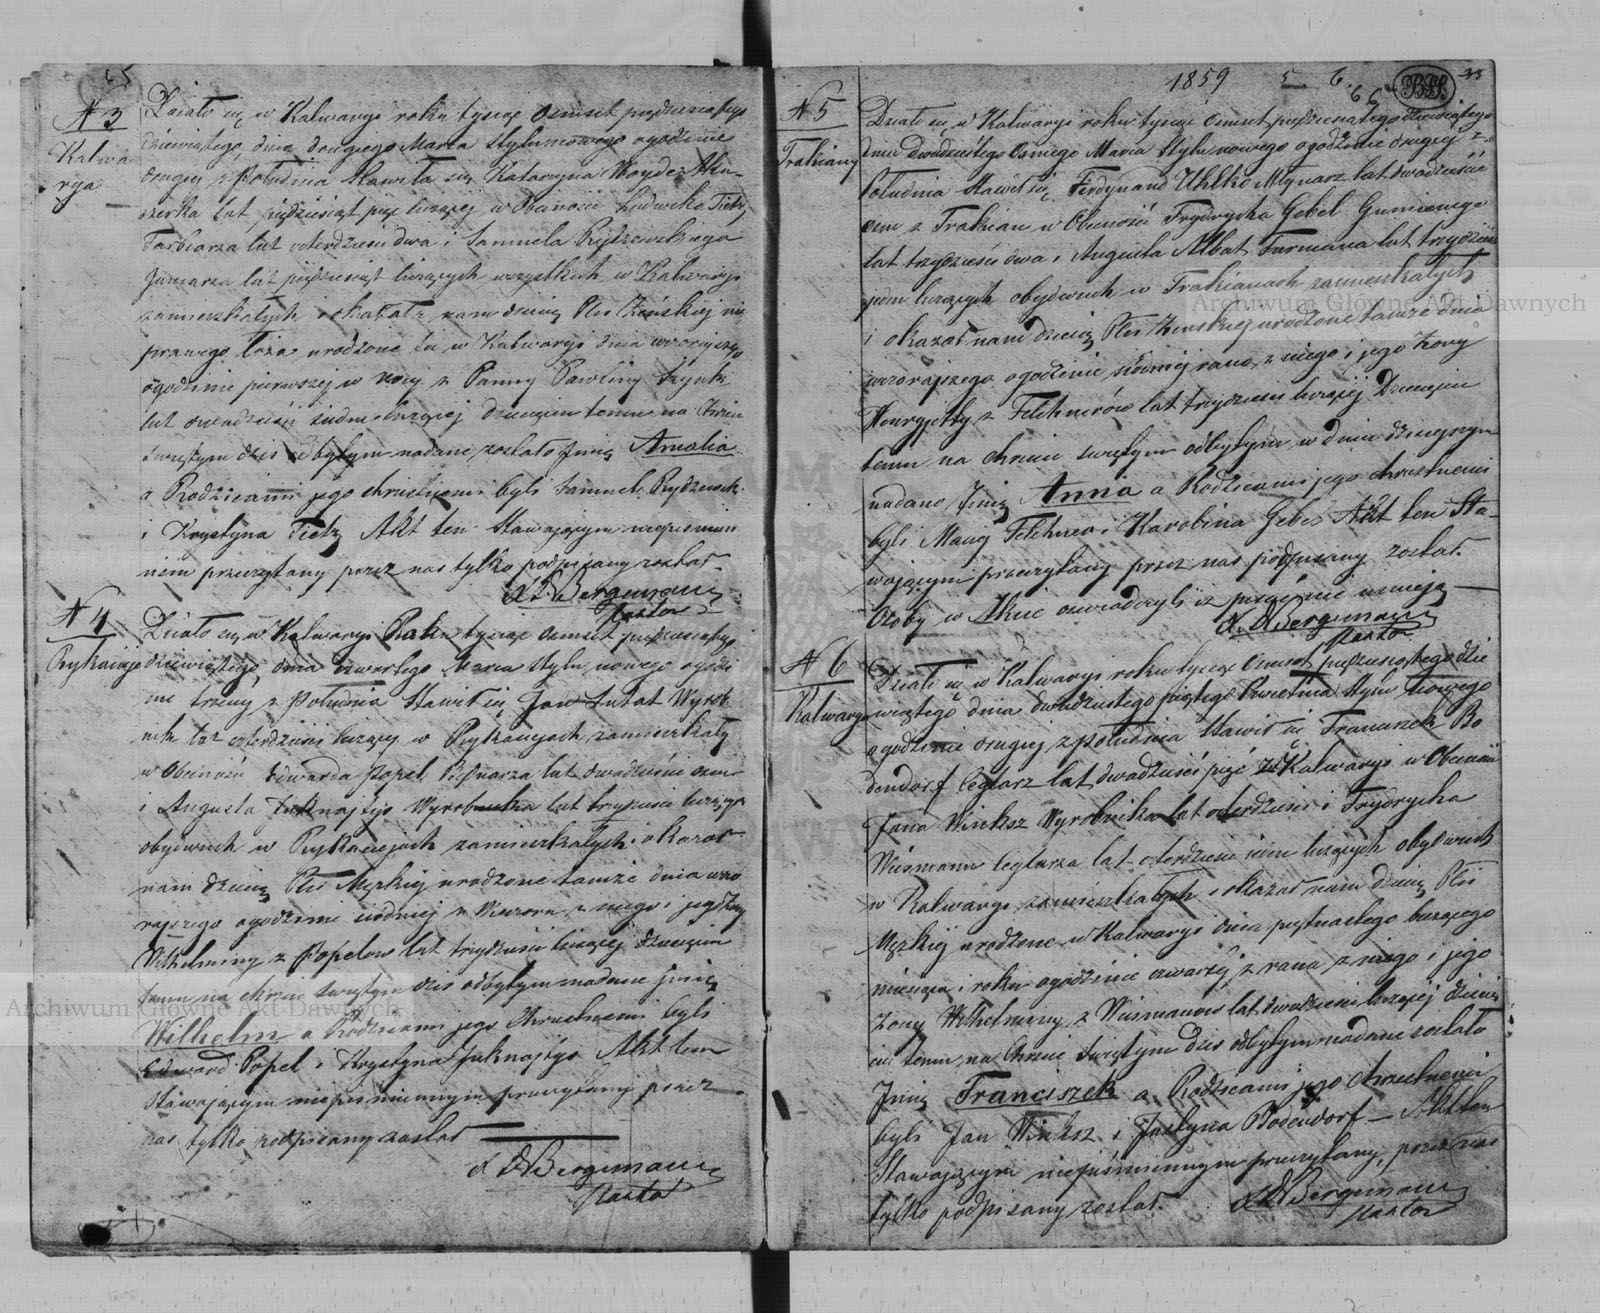 65
N 3
Kalwa
rya
Działo się w Kalwaryi roku tysiąc osmset pięćdziesiątego
dziewiątego, dnia drugiego Marca stylu nowego o godzinie
drugiey z Południa stawiła się Katarzyna Woydez Aku-
szerka lat pięćdziesiąt pięć licząca w obecności Ludwika Tietz
Farbiarza lat czterdzieści dwa i Samuela Rydzewskiego
lat pięćdziesiąt liczących wszystkich w Kalwaryi
zamieszkałych i okazała nam dziecię Płci Żeńskiej nie
prawego łoża urodzone tu w Kalwaryi dnia wczorajszego
o godzinie pierwszej w nocy z Panny Pawliny
lat dwadzieścia siedm liczącej dziecięciu temu na Chrzcie
świętym dziś odbytym nadane zostało Jmię Amalia
a Rodzicami jego chrzestnemi byli Samuel Rydzewsk.
i Krystyna Tietz Akt ten Stawającym niepiśmien
niem przeczytany przez nas tylko podpisany został
Bergemann
Pastor
N 4
Działo się w Kalwaryi Roku tysiąc osmset pięćdziesiątego
dziewiątego, dnia czwartego Marca stylu nowego godzi
nie trzeciey z Południa stawił się Jan Wyrob
nik lat czterdzieści liczący w zamieszkały
w Obecności Edwarda Popel Bednarza lat dwadzieścia osm
i Augusta Juknajtys Wyrobnika lat trzydzieści liczących
obydwuch w zamieszkałych i okazał
nam dziecię Płci Męzkiej urodzone tamże dnia wczo
rajszego o godzinie siódmej z Wieczora z niego i jego Żony
Wilhelminy z Popelow lat trzydzieści liczącej dziecięciu
temu na chrzcie świętym dziś odbytym nadane Jmię
Wilhelm a Rodzicami jego Chrzestnemi byli
Edward Popel i Krystyna Juknajtys Akt ten
Stawającym niepiśmiennym przeczytany przez
nas tylko podpisany został
Bergemann
Pastor
1859
5 6.
66
33
N 5
Trakiany
Działo się w Kalwaryi roku tysiąc osmset pięćdziesiątego dziewiątego
dnia dwudziestego Osmego Marca Stylu nowego o godzinie drugiey z
Południa stawił się Ferdynand Młynarz lat dwadzieścia
osm z Trakian w Obecności Frydrycha Gebel Gumiennego
lat trzydzieści dwa i Augusta Albat Furmana lat trzydzieści
jeden liczących obydwuch w Trakianach zamieszkałych
i okazał nam dziecię Płci Żenskiej urodzone tamże dnia
wczorajszego o godzinie siódmej rano, z niego i jego Żony
Henryjetty z Felchnerów lat trzydzieści liczącej Dziecięciu
temu na chrzcie świętym odbytym w dniu dzisiejszym
nadano Jmię Anna a Rodzicami jego chrzestnemi
byli i Karolina Gebel Akt ten Sta-
wającym przeczytany przez nas podpisany został.
Osoby w Akcie oświadczyli iż pisać nie umieją
Bergemann
Pastor
N 6
Kalwarya
Działo się w Kalwaryi roku tysiąc Osmset pięćdziesiątego dzie
wiątego dnia dwudziestego piątego Kwietnia stylu nowego
o godzinie drugiey z południa stawił się Franciszek Bo
dendorf Ceglarz lat dwadzieścia pięć z Kalwaryi w Obecności
Jana Winksz Wyrobnika lat czterdzieści i Frydrycha
Wiusmann Ceglarza lat czterdzieści liczących obydwuch
w Kalwaryi zamieszkałych i okazał nam dziecię Płci
Męzkiej urodzone w Kalwaryi dnia piętnastego bieżącego
miesiąca i roku o godzinie czwartej z rana z niego i jego
żony Wilhelminy z Wiusmanow lat dwadzieścia liczącej dziecię
ciu temu na Chrzcie świętym dziś odbytym nadane zostało
Jmię Franciszek a Rodzicami jego chrzestnemi
byli Jan Winksz i Justyna Bodendorf — Akt ten
Stawającym niepiśmiennym przeczytany, przez nas
tylko podpisany został.
Bergemann
Pastor
Archiwum Główne Akt Dawnych
Archiwum Główne Akt Dawnych